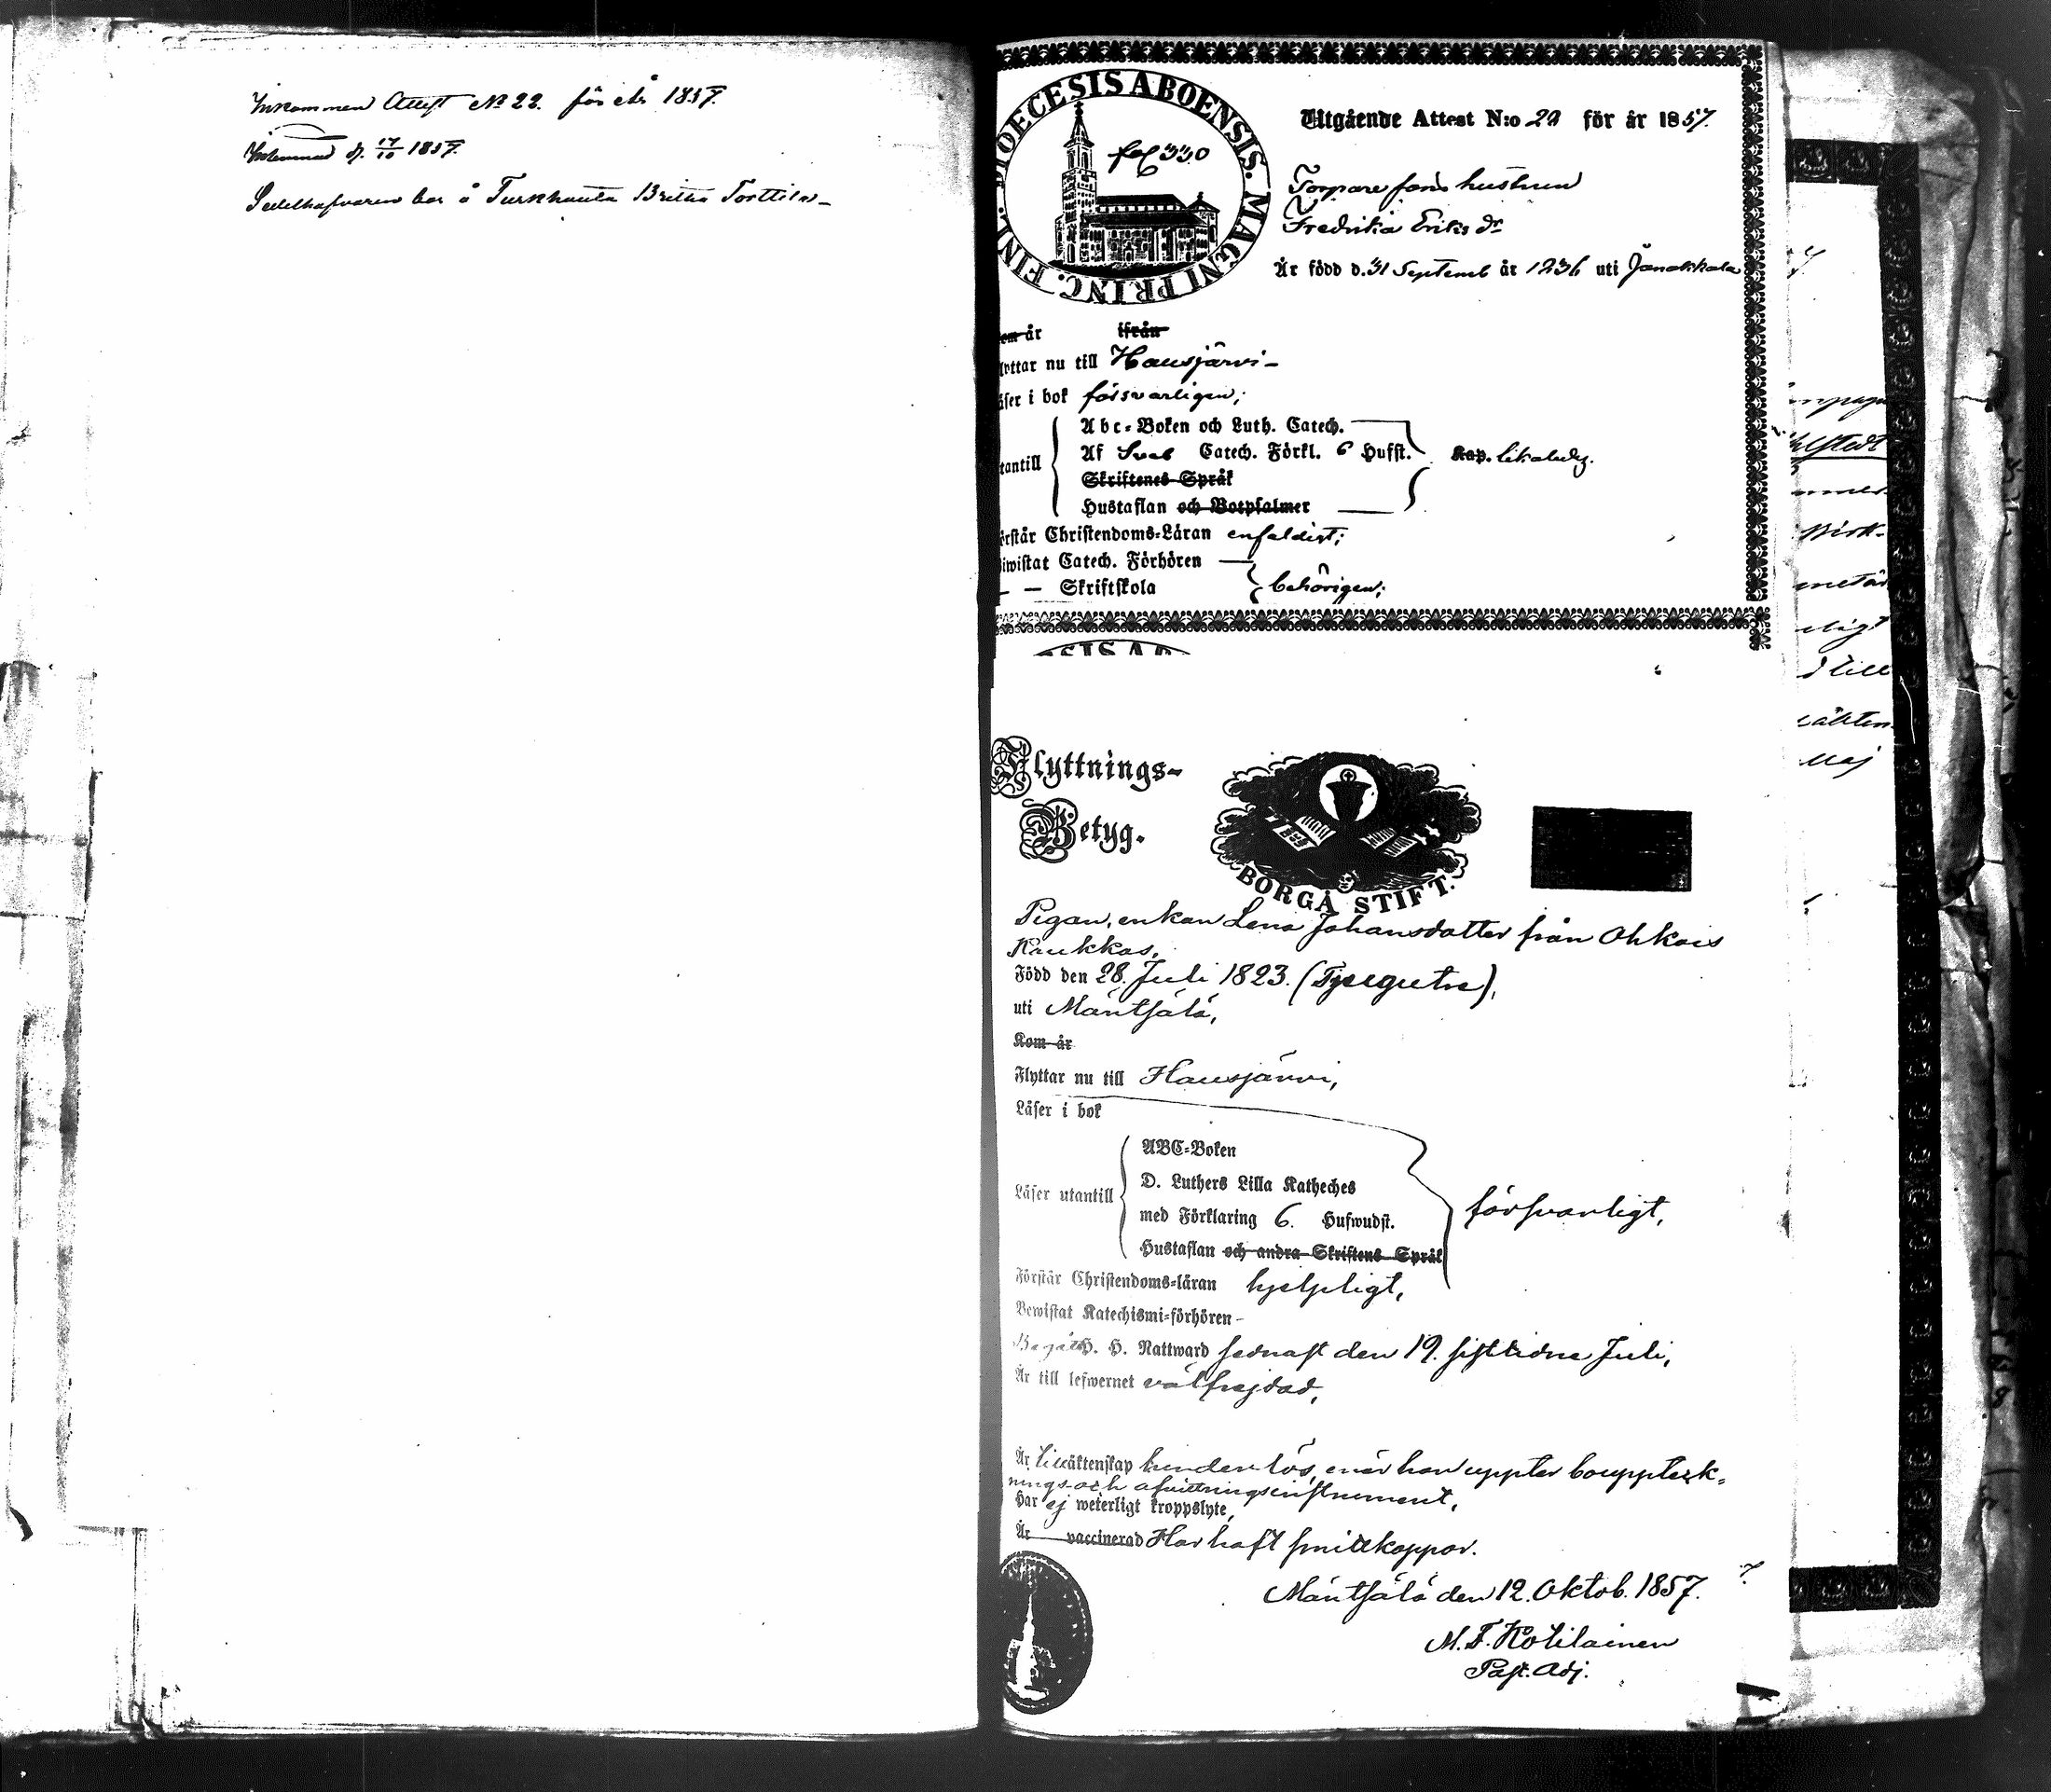 Inkommen Attest No 22. för år 1857.
Inlemnad d. 17/10 1857.
Sedelhafvaren bor å Turkhauta Britta Torttila
DIOECESIS ABOENSIS. MAGNI PRINC. FINL.
fol 330
Utgående Attest N:o 29 för år 1857.
Torpare hustrun
Fredrika Eriks dr
Är född d. 31 Septemb år 1836 uti Janakkala
om år ifrån
lyttar nu till Hausjärvi
äser i bok försvarligen;
Abc-Boken och Luth. Catech.
tantill Af Sveb Catech. Förkl. 6 Hufst. Kap. likaledes.
Skriftenes Språk
Hustaflan och Botpsalmer
örstår Christendoms-Läran enfaldigt;
iwistat Catech. Förhören
— — Skriftskola behörigen;
SIS AB
Flyttnings-
Betyg.
BORGÅ STIFT.
Pigan, enkan Lena Johansdotter från Ohkois
Kaukkas,
Född den 28. Juli 1823. (Tjugutre),
uti Mäntsälä,
Kom år
Flyttar nu till Hausjärvi,
Läser i bok
ABC-Boken
D. Luthers Lilla Katheches
Läser utantill
med Förklaring 6. Hufwudst. försvarligt,
Hustaflan och andra Skriftens Språk
Förstår Christendoms-läran hjelpligt,
Bewistat Katechismi-förhören -
Begått H. H. Nattward sednast den 19. sistlidne Juli,
Är till lefwernet välfrejdad,
Är till äktenskap hinderlös, enär hon uppter bouppteck-
nings- och afvittringsinstrument,
Har ej weterligt kroppslyte,
Är vaccinerad Har haft smittkoppor.
Mäntsälä den 12. Oktob. 1857.
M. F. Kotilainen
Past. Adj.